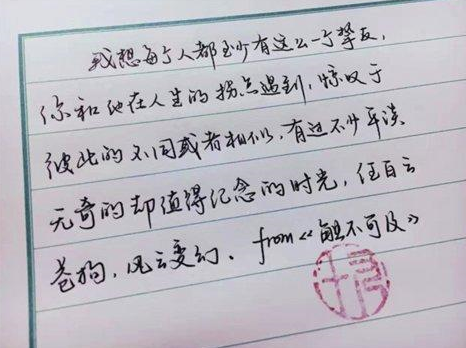 我想每个人都至少有这么一个挚友，
你和他在人生的拐点遇到，惊叹于
彼此的不同或者相似，有过不少平淡
无奇的却值得纪念的时光，任白云
苍狗，风云变幻。from《触不可及》